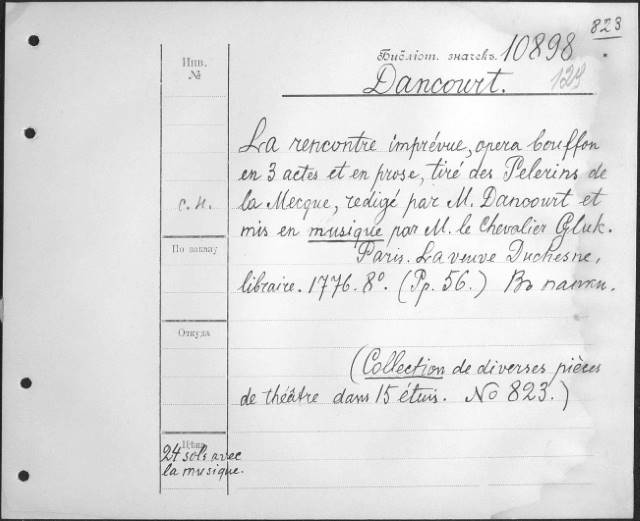 823
Инв.
№
Библіот. значекъ. 10898
Dancourt.
La rencontre imprévue, opera bouffon
en 3 actes et en prose, tiré des Pelerins de
la Mecque, redigé par M. Dancourt et
с.н.
mis en musique par M. le Chevalier Gluk.
По заказу
Paris. La veuve Duchesne,
libraire. 1776. 8º. (Pp. 56.) Въ папки.
Откуда
(Collection de diverses pièces
de théâtre dans 15 étuis. No 823.)
Цѣна
24 sols avec
la musique.